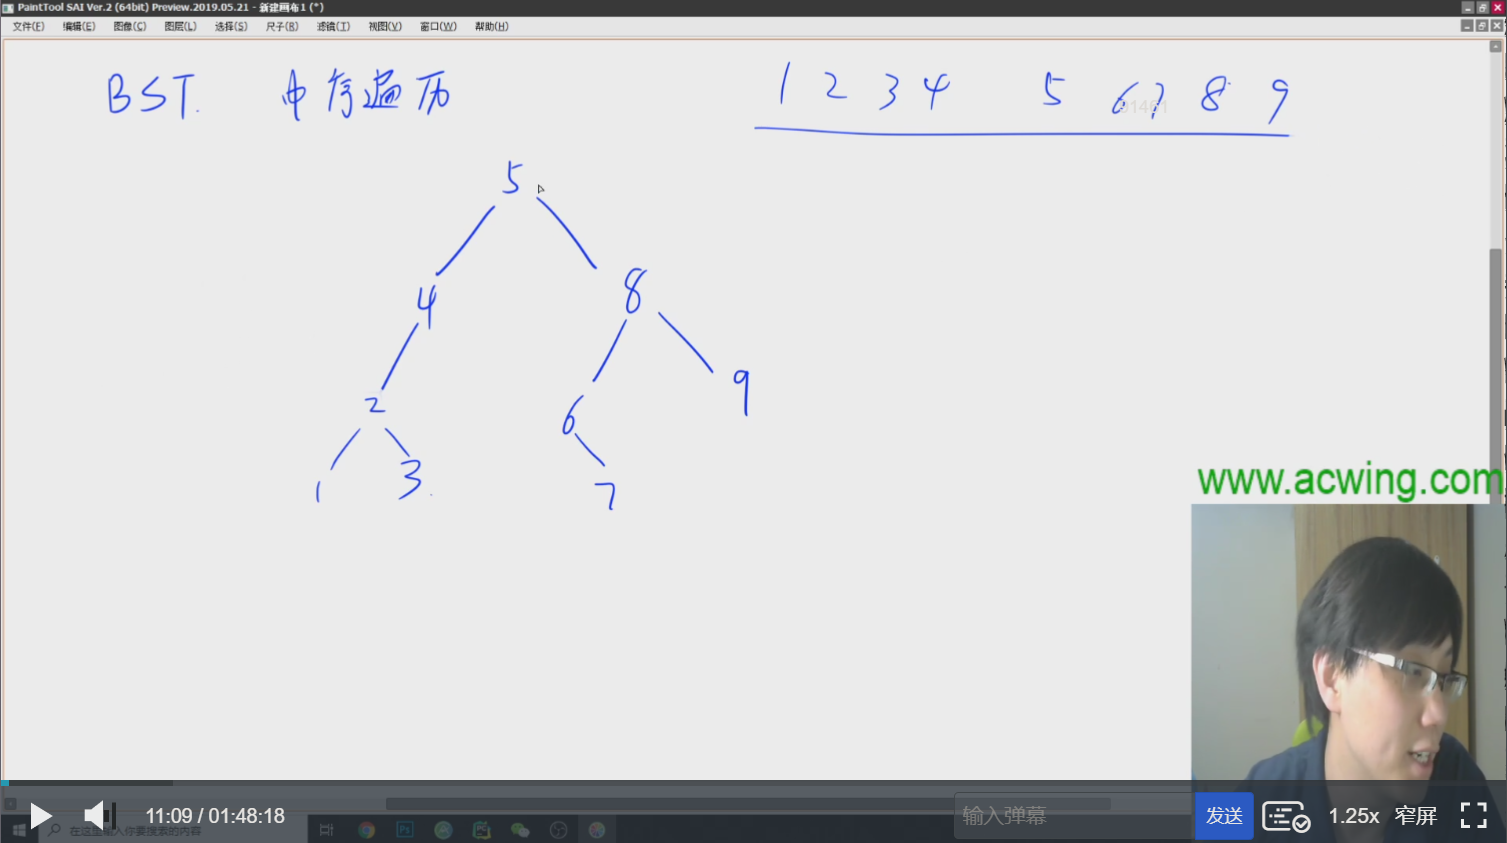 PaintTool SAI Ver.2 (64bit) Preview.2019.05.21 - 新建画布1 (*)
文件(F) 编辑(E) 图像(C) 图层(L) 选择(S) 尺子(R) 滤镜(T) 视图(V) 窗口(W) 帮助(H)
BST. 中序遍历 1 2 3 4 5 6 7 8 9
5
4 8
2 6 9
1 3 7
www.acwing.com
11:09 / 01:48:18 输入弹幕 发送 1.25x 窄屏
在这里输入你要搜索的内容